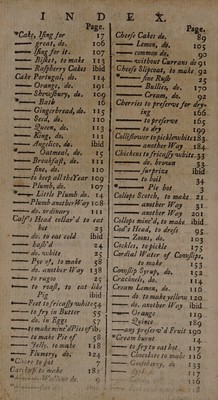 INDEX.
Page.
*Cake, Ising for 17
great, do. 106
Ising for it. 107
Bisket, to make 113
Raspberry Cakes ibid
Cake Portugal, do. 114
Orange, do. 191
Shrewsbury, do. 109
* Bath 16
Gingerbread, do. 115
Seed, do. 110
Queen, do. 113
King, do. 111
Angelica, do. ibid
* Oatmeal, do. 15
Breakfast, do. 111
fine, do. 110
to keep all the Year 109
Plumb, do. 107
* Little Plumb do. 14
Plumb another Way 108
do. ordinary 111
Calf's Head collar'd to eat
hot 23
do. to eat cold ibid
hash'd 24
do. white 25
Pye of, to make 58
do. another Way 138
to ragoo 25
to roast, to eat like
Pig ibid
Feet to fricassy white 54
to fry in Butter 55
do. in Eggs 57
to make mince Pies of ib.
to make Pie of 58
Jelly, to make 118
Plumery, do. 124
to pot 7
Catchup to make 181
Page.
Cheese Cakes do. 89
Lemon, do. 105
common do. 90
without Currans do 91
Cheese slipcoat, to make 92
fine Rush 25
Bullies, do. 170
Cream, do. 92
Cherries to preserve for dry-
ing 166
to preserve 165
to dry 199
Colliflower to pickle white 183
another Way 184
Chickens to fricassy white 33
do. brown 33
surprize ibid
34
* Pie hot 3
Collops Scotch, to make. 21
another Way 31
another Way 201
Collops minc'd, to make ibid
Cod's Head, to dress 95
Zoons, do. 103
Cockles, to pickle 175
Cordial Water of Conslips,
to make 153
Conslip Syrup, do. 152
Cracknels, do. 114
Cream Lemon, do. 116
do. to make yellow 120
do. another Way ibid
Orange 119
Quince 189
any preserv'd Fruit 190
*Cream burnt 14
to fry to eat hot 117
Chocolate to make 116
116